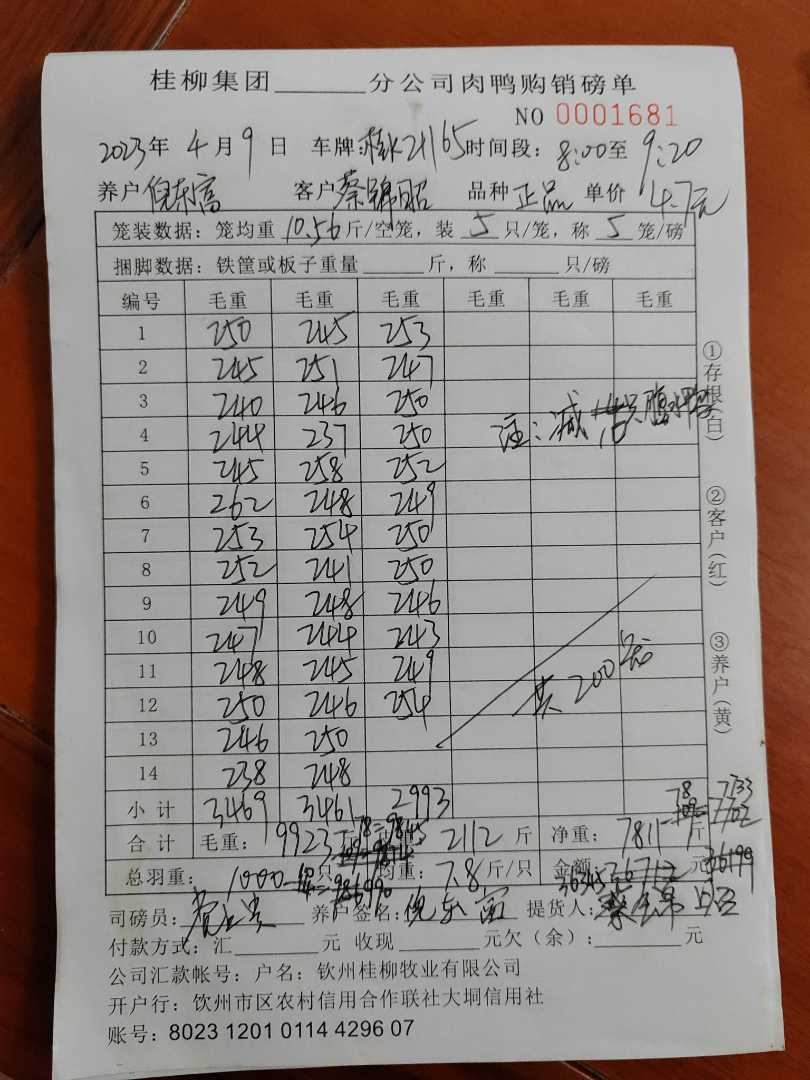 桂柳集团______分公司肉鸭购销磅单
NO 0001681
2023年 4月9日 车牌: 21165 时间段: 8:00至 9:20
养户 倪东富 客户 蔡锦昭 品种 正品 单价 4.7元
笼装数据: 笼均重 10.56 斤/空笼, 装 5 只/笼, 称 5 笼/磅
捆脚数据: 铁筐或板子重量______斤, 称______只/磅
编号 毛重 毛重 毛重 毛重 毛重 毛重
1 250 245 253
2 245 251 247
3 240 246 250
4 244 237 250
注: 减 只腹水鸭
5 245 258 252
6 262 248 249
7 253 254 250
8 252 241 250
9 249 248 246
10 247 244 243
11 248 245 249
12 250 246 254
共200笼
13 246 250
14 238 248
小计 3469 3461 2993
78 7733
7702
合计 毛重: 9923 2112 斤 净重: 7811 斤
总羽重: 1000 只 均重: 7.8 斤/只 金额: 36712 元
36345 36199
司磅员: 养户签名: 倪东富 提货人: 蔡锦昭
付款方式: 汇______元 收现______元欠(余): ______元
公司汇款帐号: 户名: 钦州桂柳牧业有限公司
开户行: 饮州市区农村信用合作联社大垌信用社
账号: 8023 1201 0114 4296 07
①存根(白)
②客户(红)
③养户(黄)